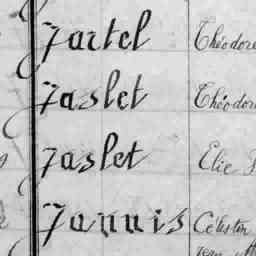 Jartel Théodore
Jaslet Théodor
Jaslet Elie
Jannis Célestin
Jean